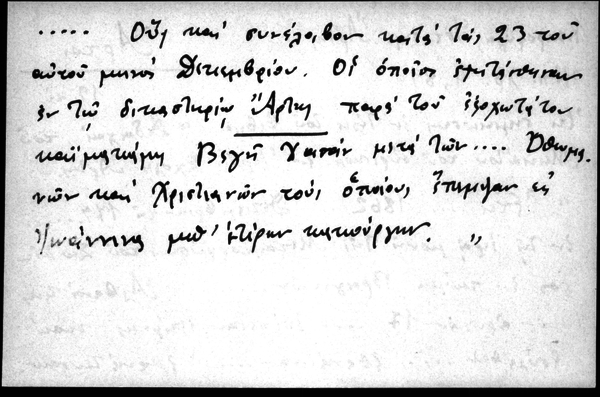 ..... Οὓς καὶ συνέλαβον κατὰ τὰς 23 τοῦ
αὐτοῦ μηνὸς Δεκεμβρίου. Οἱ ὁποῖοι
ἐν τῷ δικαστηρίῳ Ἄρτης παρὰ τοῦ ἐξοχωτάτου
καϊμακάμη Βεχὴ Χασὰν μετὰ τῶν .... Ὀθωμα-
νῶν καὶ Χριστιανῶν τοὺς ὁποίους ἔπεμψαν εἰς
Ἰωάννινα μεθ' ἑτέρων κακούργων. "